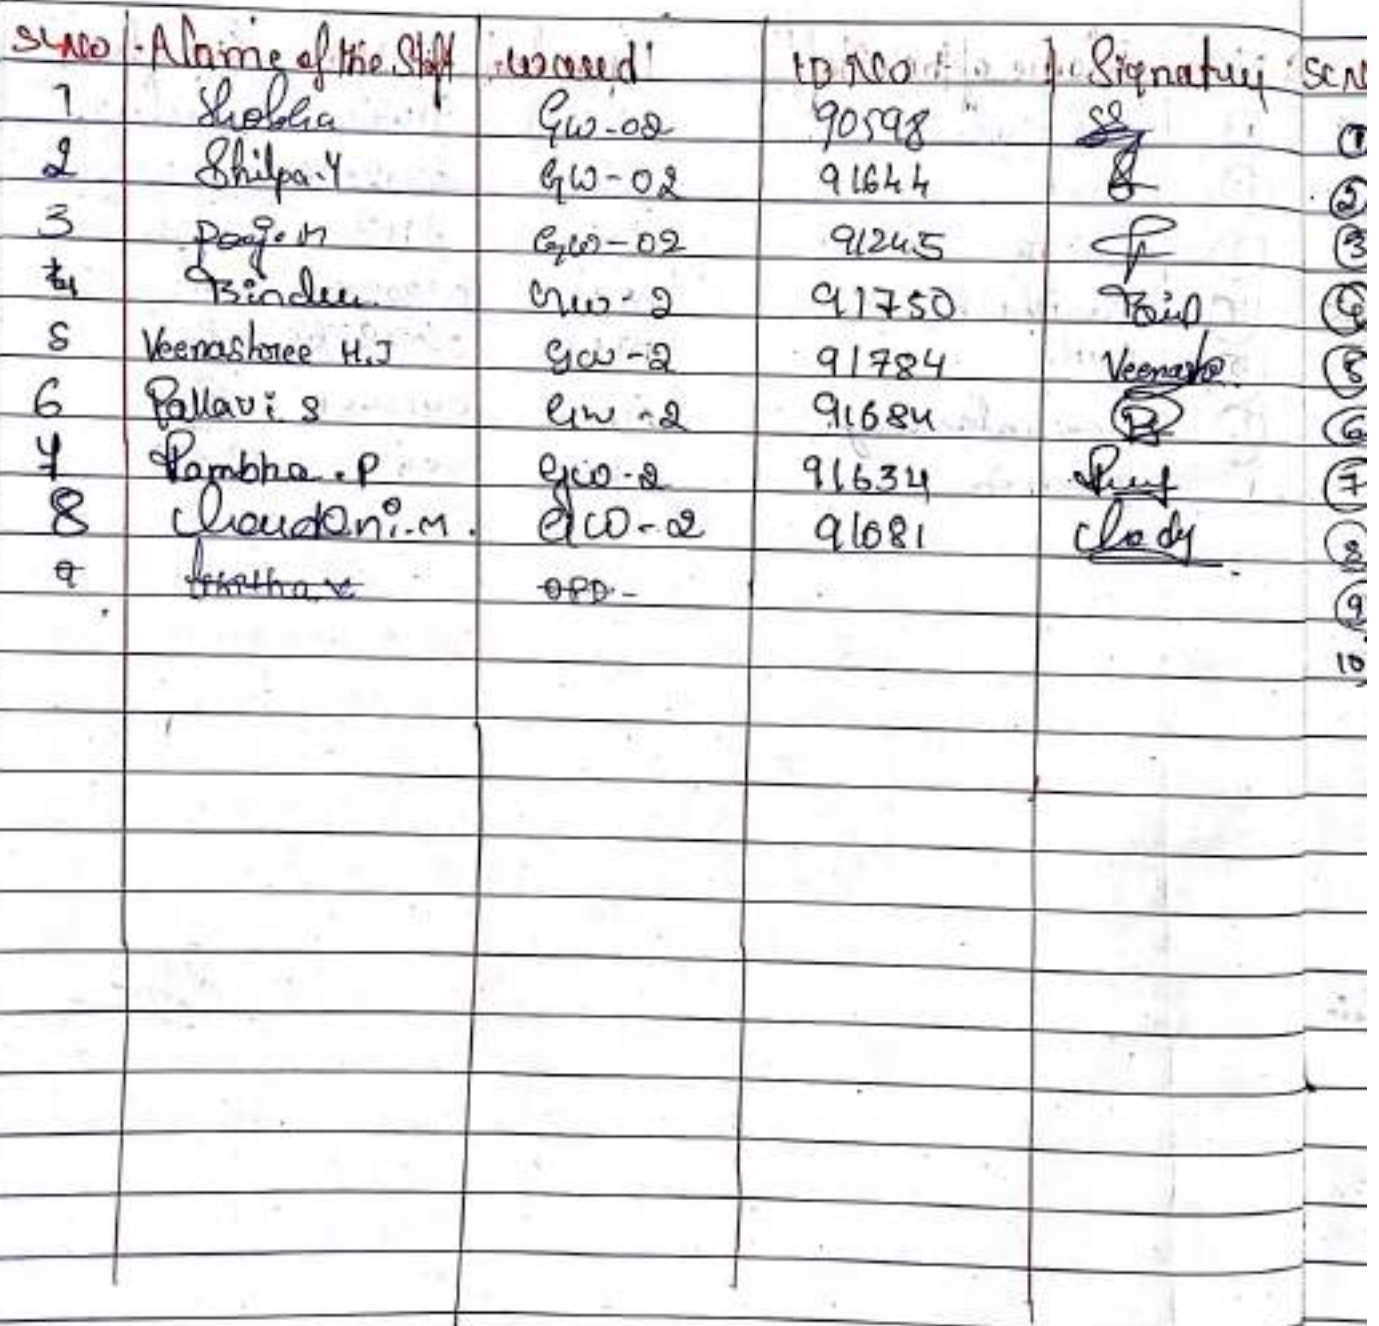 SL.NO Name of the Staff ward ID NO Signature SL NO
1 Shobha GW-02 90598 1
2 Shilpa.Y GW-02 91644 2
3 Pooj.M GW-02 91245 3
4 Bindu GW-2 91750 Bin 4
5 Veenashree H.J GW-2 91784 Veenash 5
6 Pallavi S GW-2 91684 P 6
7 Rambha.P GW-2 91634 7
8 Choudani.M. GW-2 91681 Chody 8
9 OPD- 9
10